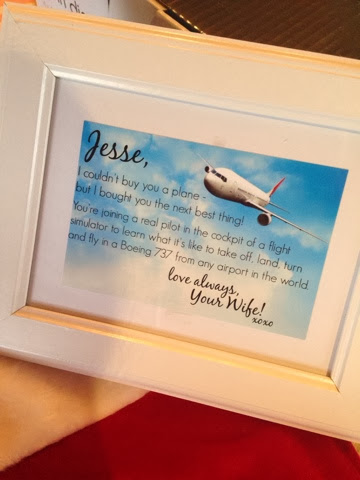 Jesse,
I couldn't buy you a plane -
but I bought you the next best thing!
You're joining a real pilot in the cockpit of a flight
simulator to learn what it's like to take off, land, turn
and fly in a Boeing 737 from any airport in the world
love always,
Your Wife!
xoxo